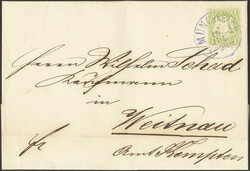 Herrn Wilhelm Schad
Kaufmann
in
Weitnau
fr
Amt Kempten